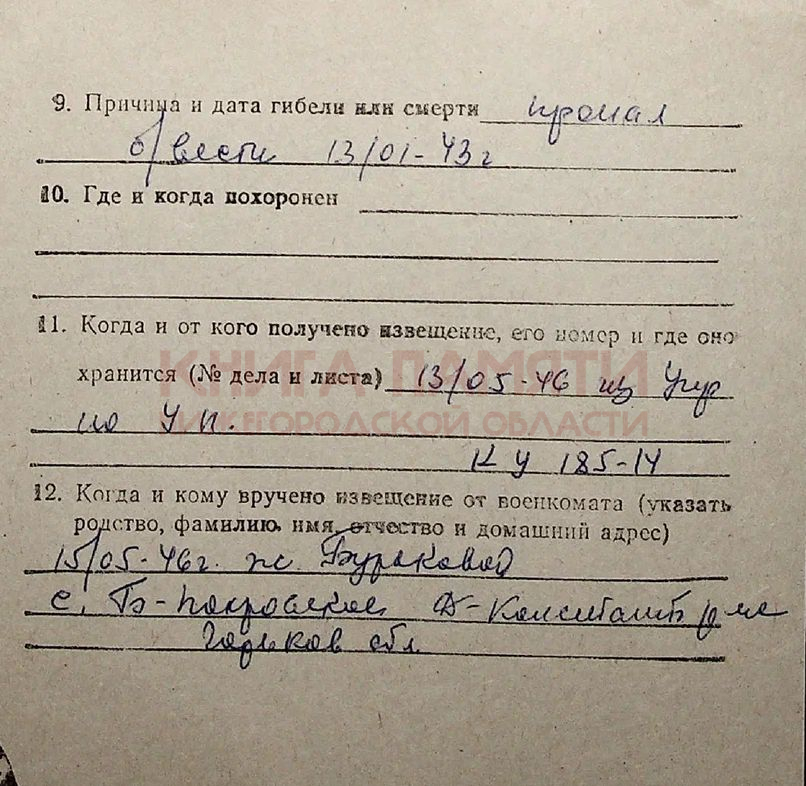 9. Причина и дата гибели или смерти пропал
б/вести 13/01-43г
10. Где и когда похоронен
11. Когда и от кого получено извещение, его номер и где оно
хранится (№ дела и листа) 13/05-46 из Упр
КНИГА ПАМЯТИ
по У п.
НИЖЕГОРОДСКОЙ ОБЛАСТИ
К У 185-14
12. Когда и кому вручено извещение от военкомата (указать
родство, фамилию, имя, отчество и домашний адрес)
15/05-46г. ж. Бураковой
с. Б-Покровское Д-Константр не
Горьков обл